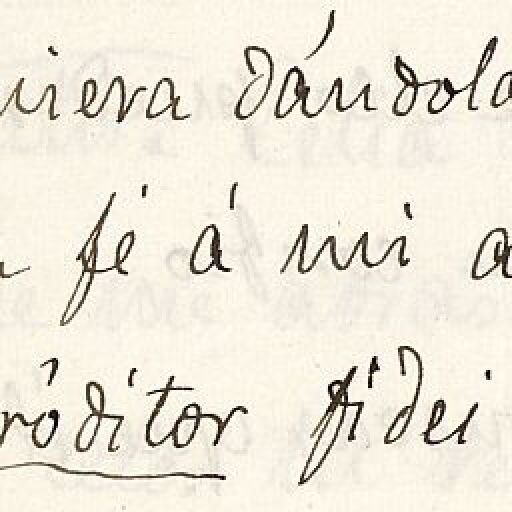 uiera dándola
fé á mi a
róditor fidei